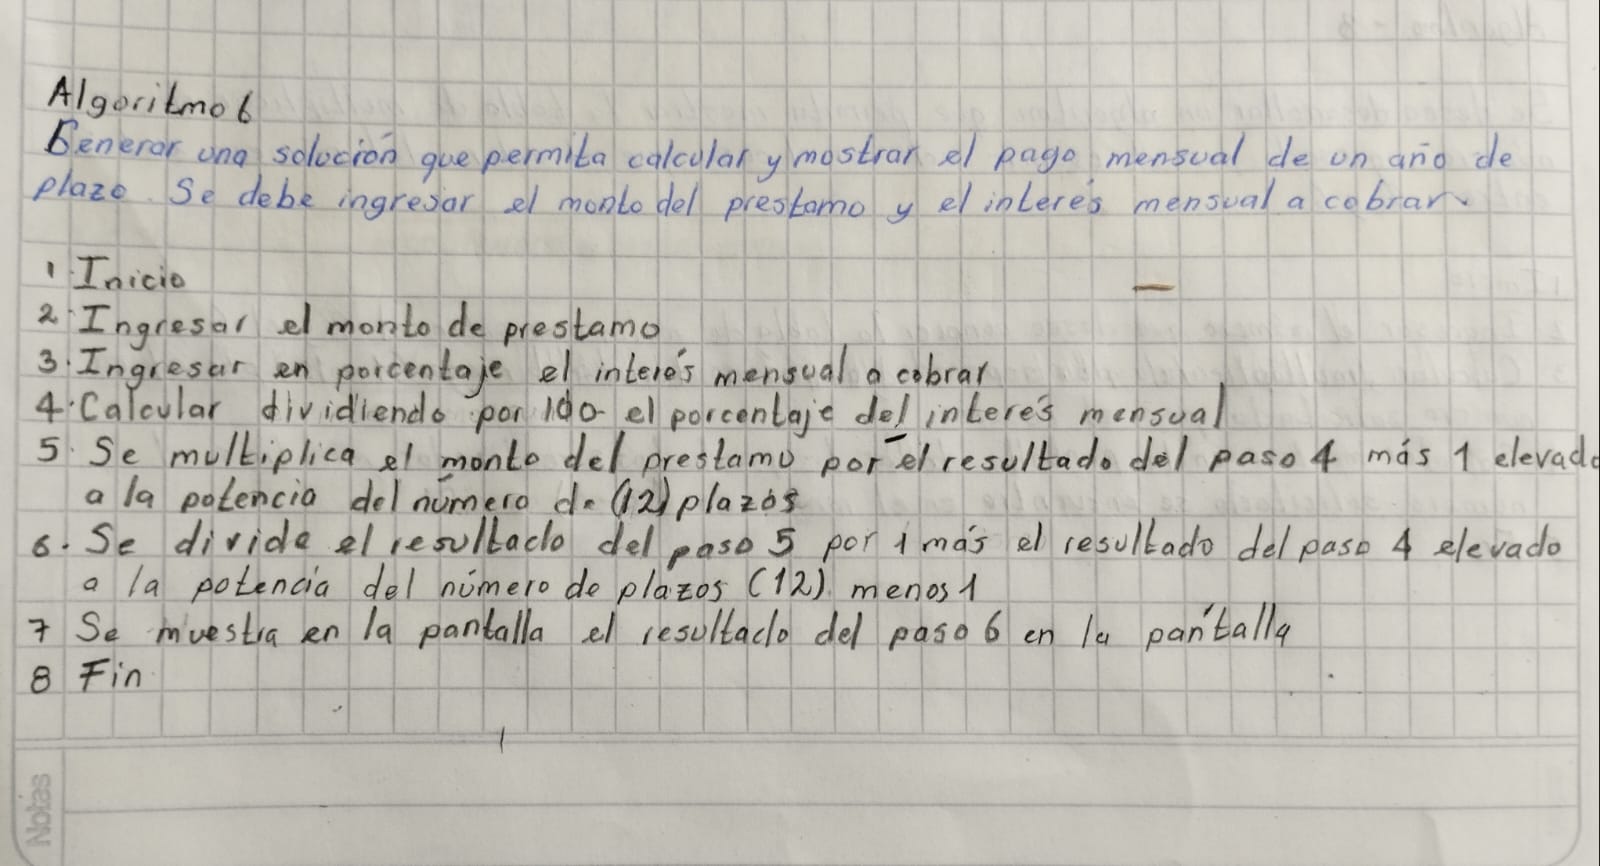 Algoritmo 6
Generar una solución que permita calcular y mostrar el pago mensual de un año de
plazo. Se debe ingresar el monto del prestamo y el interés mensual a cobrar.
1 Inicio
2. Ingresar el monto de prestamo
3. Ingresar en porcentaje el interés mensual a cobrar
4. Calcular dividiendo por 100 el porcentaje del interés mensual
5. Se multiplica el monto del prestamo por el resultado del paso 4 más 1 elevado
a la potencia del número de (12) plazos
6. Se divide el resultado del paso 5 por 1 más el resultado del paso 4 elevado
a la potencia del número de plazos (12) menos 1
7 Se muestra en la pantalla el resultado del paso 6 en la pantalla
8 Fin
Notas